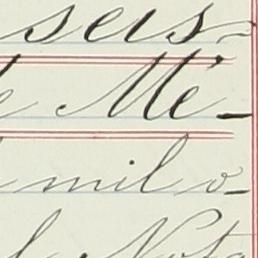 seis
e Mé-
mil o-
l Nota